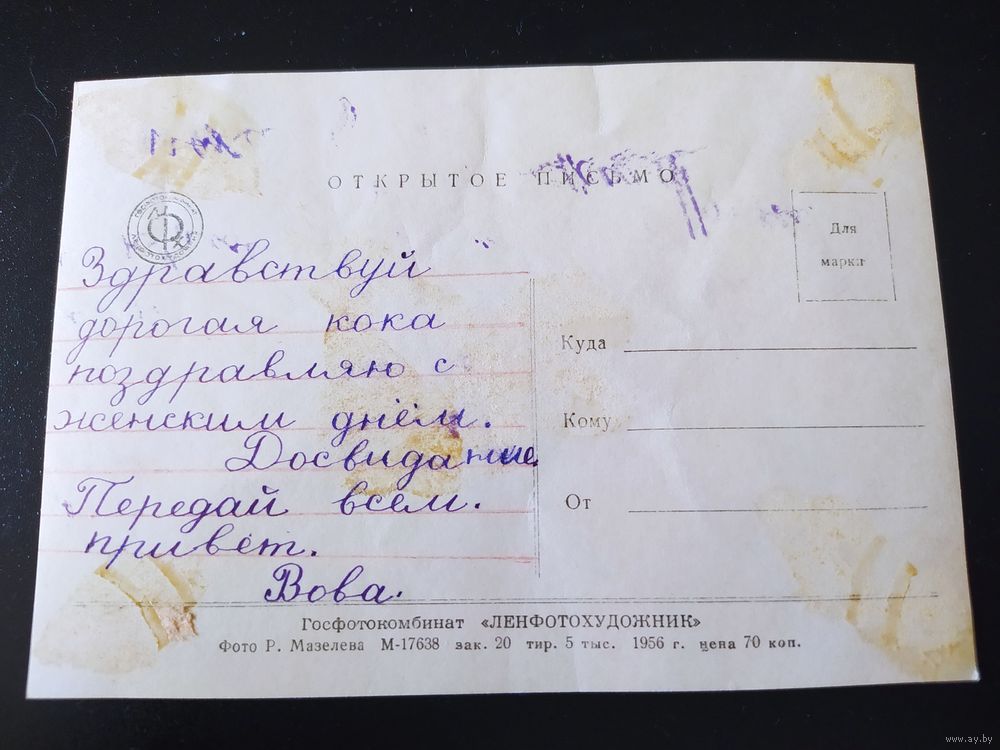 ОТКРЫТОЕ ПИСЬМО
Для
марки
Здравствуй
дорогая кока
поздравляю с
женским днём.
Досвидание
Передай всем.
привет.
Вова.
Куда
Кому
От
Госфотокомбинат «ЛЕНФОТОХУДОЖНИК»
Фото Р. Мазелева М-17638 зак. 20 тир. 5 тыс. 1956 г. цена 70 коп.
www.ay.by